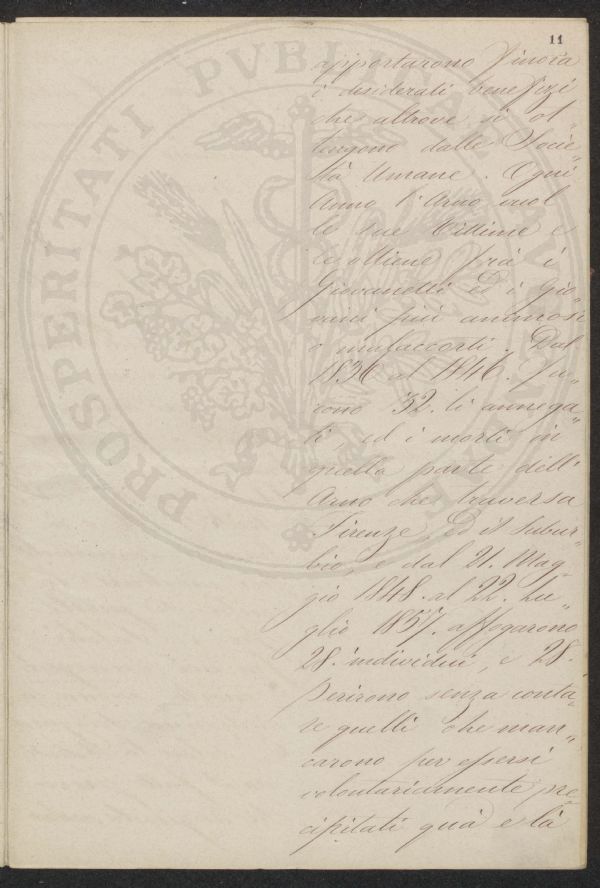 11
apportarono finora
i desiderati benefizi
che altrove si ot„
tengono dalle Socie„
tà Umane. Ogni
Anno l'Arno vuol
le sue Vittime e
le ottiene frà i
Giovanetti ed i gio„
vani più animosi
o malaccorti. Dal
1836 al 1846. fu„
rono 32. li annega„
ti, ed i morti in
quella parte dell'
Arno che traversa
Firenze, ed il Subur„
bio, e dal 21. Mag„
gio 1848. al 22. Lu„
glio 1857. affogarono
28. individui, e 28.
perirono senza conta„
re quelli che man„
carono per essersi
volontariamente pre„
cipitati quà e là
PROSPERITATI PVBLICAE